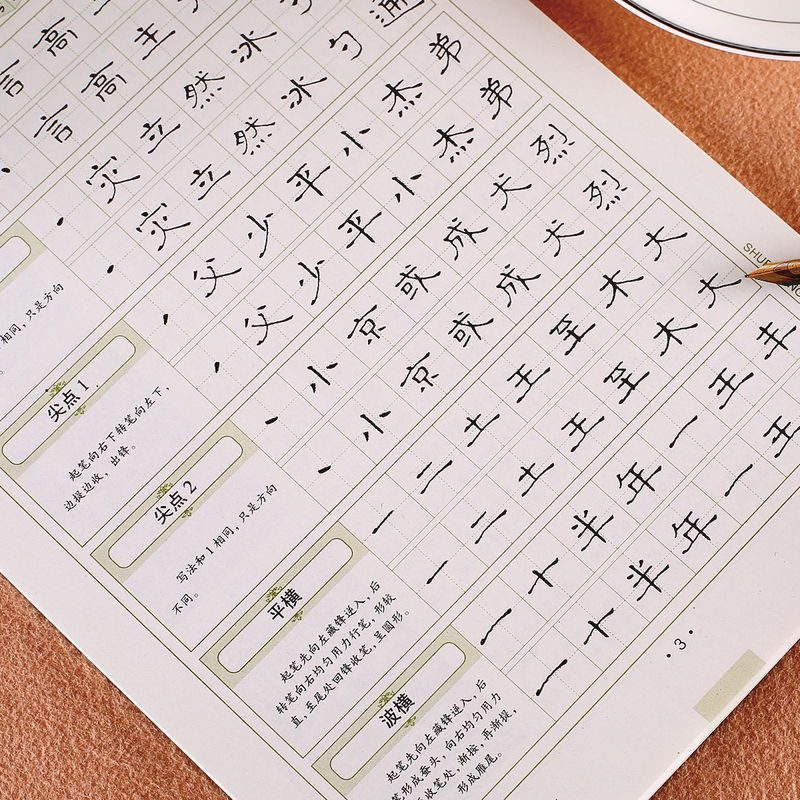 言 高
丶 言 高 主
丶 灾 立 然 冰
丶 灾 立 然 冰 勺 通
相同,只是方向
。
尖点1
起笔向右下转笔向左下,
边提边收,出锋。
丶 父 少 平 小 杰 弟
丶 父 少 平 小 杰 弟
尖点2
写法和1相同,只是方向
不同。
丶 小 京 或 成 犬 烈
丶 小 京 或 成 犬 烈
平横
起笔先向左藏锋逆入,后
转笔向右均匀用力行笔,形较
直,至尾处回锋收笔,呈圆形。
一 二 土 王 至 木 大
一 二 土 王 至 木 大
波横
起笔先向左藏锋逆入,后
笔形成蚕头,向右均匀用力
收笔处,渐按,再渐提,
形成雁尾。
一 十 半 年 一 王 丰
一 十 半 年 一 王
·3·